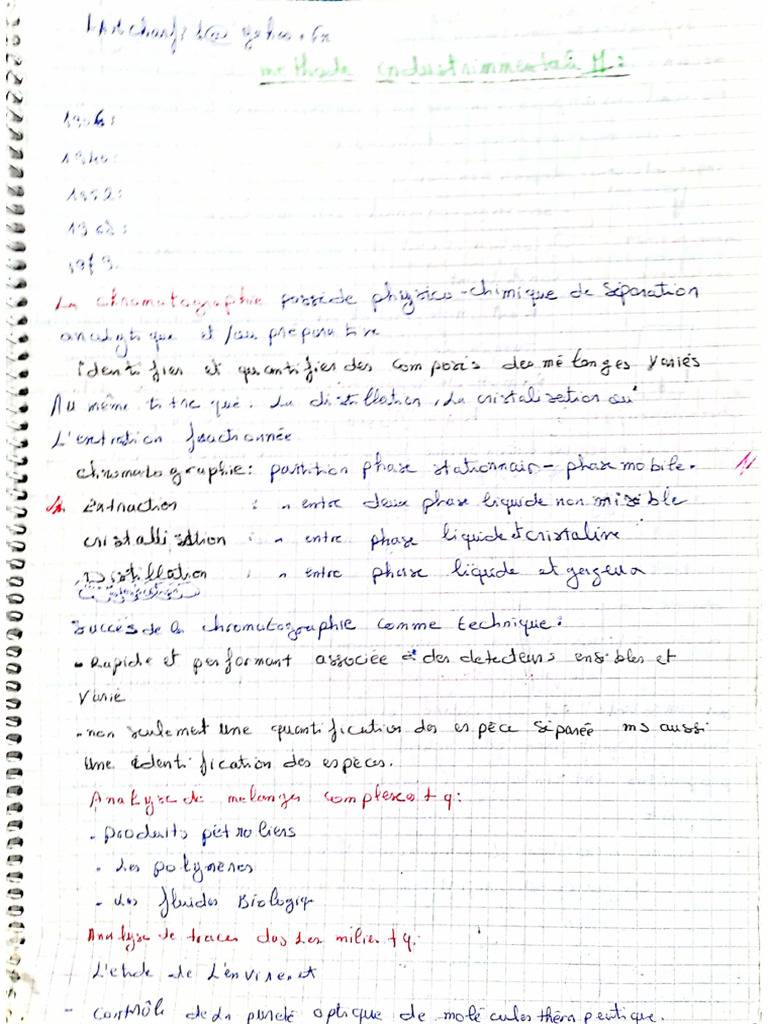 méthode
1906:
1940:
1952:
1968:
La chromatographie possède physico-chimique de séparation
analytique et/ou préparative
identifier et quantifier des composés des mélanges variés
Au même titre que. La distillation, La cristalisation ou
L'extration fractionnée
chromatographie: partition phase stationnair - phase mobile.
Extraction : " entre deux phase liquide non misible
cristallisation : " entre phase liquide et cristaline
Distillation : " entre phase liquide et
Succès de la chromatographie comme technique:
- Rapide et performant associée à des detecteurs ensibles et
varié
- non seulement une quantification des espèce séparée ms aussi
une identification des espèces.
Analyse de melanges complexes tq:
- produits pétroliers
- Les polymères
- Les fluides Biologiq
Analyse de traces das Les milier tq:
L'etude de L'
- contrôle de La pureté optique de molécules théra peutique.